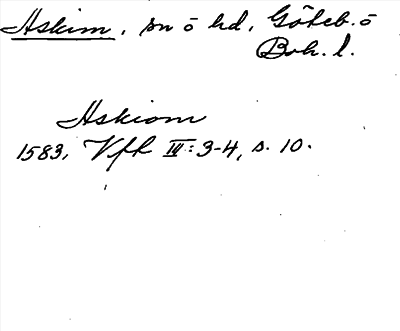 Askim, sn o hd, Göteb. o
Boh. l.
Askiom
1583, Vfr III: 3-4, s. 10.